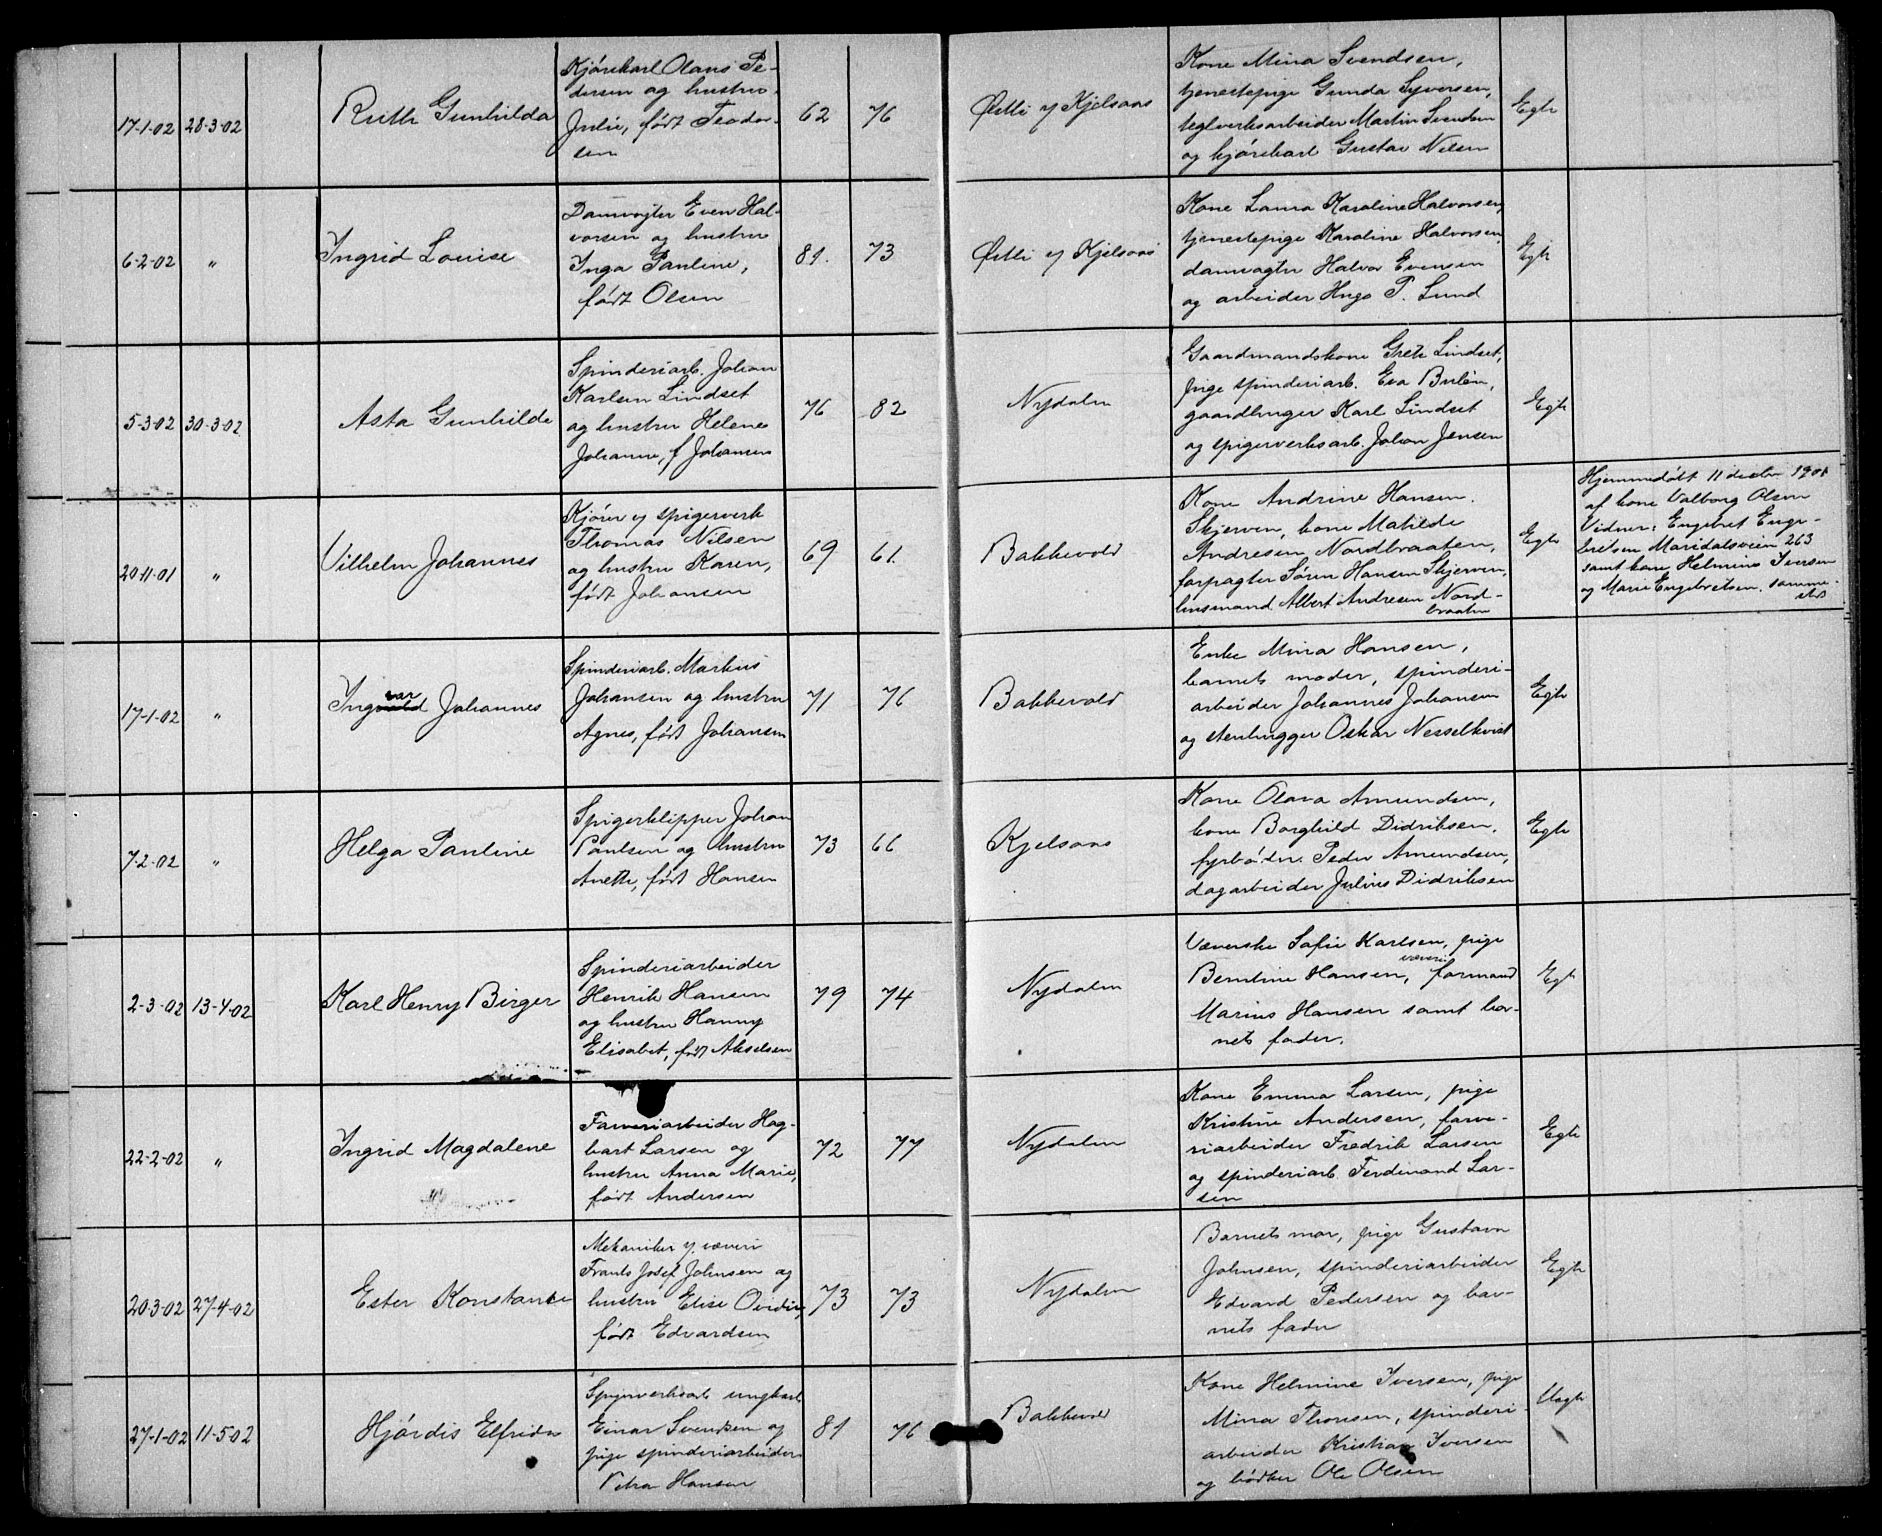 17-1-02 28-3-02
Ruth Gunhilda
Kjørekarl Olaus Pe-
dersen og hustru
Julie, født Teodor-
sen
62 76
Østli y Kjelsaas
Kone Mina Svendsen,
tjenestepige Gunda Syversen,
teglverksarbeider Martin Svendsen
og kjørekarl Gustav Nilsen
Egte
6-2-02 "
Ingrid Louise
Damvogter Even Hal-
vorsen og hustru
Inga Pauline,
født Olsen
81. 73
Østli y Kjelsaas
Kone Laura Karoline Halvorsen,
tjenestepige Karoline Halvorsen,
damvogter Halvor Evensen
og arbeider Hugo P. Lund
Egte
5-3-02 30-3-02
Asta Gunhilde
Spinderiarb. Johan
Karlsen Lindset
og hustru Helene
Johanne, f Johansen
76 82
Nydalen
Gaardmandskone Grete Lindset,
pige spinderiarb. Eva Bulén,
gaardbruger Karl Lindset
og spigerverksarb. Johan Jensen
Egte
20-11-01 "
Vilhelm Johannes
Kjører y spigerverk
Thomas Nilsen
og hustru Karen,
født Johansen
69 61.
Bakkevold
Kone Andrine Hansen
Skjerven, kone Matilde
Andresen Nordbraaten,
forpagter Søren Hansen Skjerven,
husmand Albert Andresen Nord-
braaten
Egte
Hjemmedøbt 11 decbr 1901
af kone Valborg Olsen
Vidner: Engebret Enge-
bretsen Maridalsveien 263
samt kone Helmine Iversen
og Marie Engebretsen, samme-
sted
17-1-02 "
Ingvar Johannes
Spinderiarb. Markus
Johansen og hustru
Agnes, født Johansen
71 76
Bakkevold
Enke Mina Hansen,
barnets moder, spinderi-
arbeider Johannes Johansen
og stenhugger Oskar Nesselkvist
Egte
7-2-02 "
Helga Pauline
Spigerklipper Johan
Paulsen og hustru
Anette, født Hansen
73 66
Kjelsaas
Kone Olava Amundsen,
kone Borghild Didriksen,
fyrbøder Peder Amundsen,
dagarbeider Julius Didriksen
Egte
2-3-02 13-4-02
Karl Henry Birger
Spinderiarbeider
Henrik Hansen
og hustru Hanny
Elisabet, født Akselsen
79 74
Nydalen
Væverske Sofie Karlsen, pige
Berntine Hansen, væveri formand
Marius Hansen samt bar-
nets fader.
Egt
22-2-02 "
Ingrid Magdalene
Farveriarbeider Hag-
bart Larsen og
hustru Anna Marie,
født Andersen
72 77
Nydalen
Kone Emma Larsen, pige
Kristine Andersen, farve-
riarbeider Fredrik Larsen
og spinderiarb. Ferdinand Lar-
sen
Egte
20-3-02 27-4-02
Ester Konstanse
Mekaniker y. væveri
Frants Josef Johnsen og
hustru Elise Ovidie,
født Edvardsen
73 73
Nydalen
Barnets mor, pige Gustava
Johnsen, spinderiarbeider
Edvard Pedersen og bar-
nets fader
Egte
27-1-02 11-5-02
Hjørdis Elfrida
Spigerverksarb. ungkarl
Einar Svendsen og
pige spinderiarbeider
Petra Hansen
81 76
Bakkevold
Kone Helmine Iversen, pige
Mina Thorsen, spinderi-
arbeider Kristian Iversen
og bødker Ole Olsen
Uegte